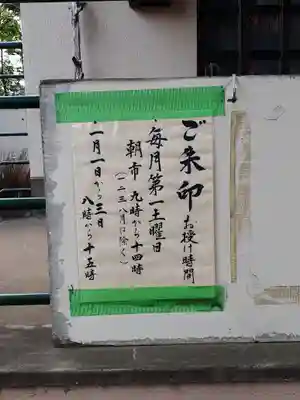 ご朱印 お授け時間
・毎月第一土曜日
朝市 九時から十四時
(一二三八月は除く)
・一月一日から三日
八時から十五時